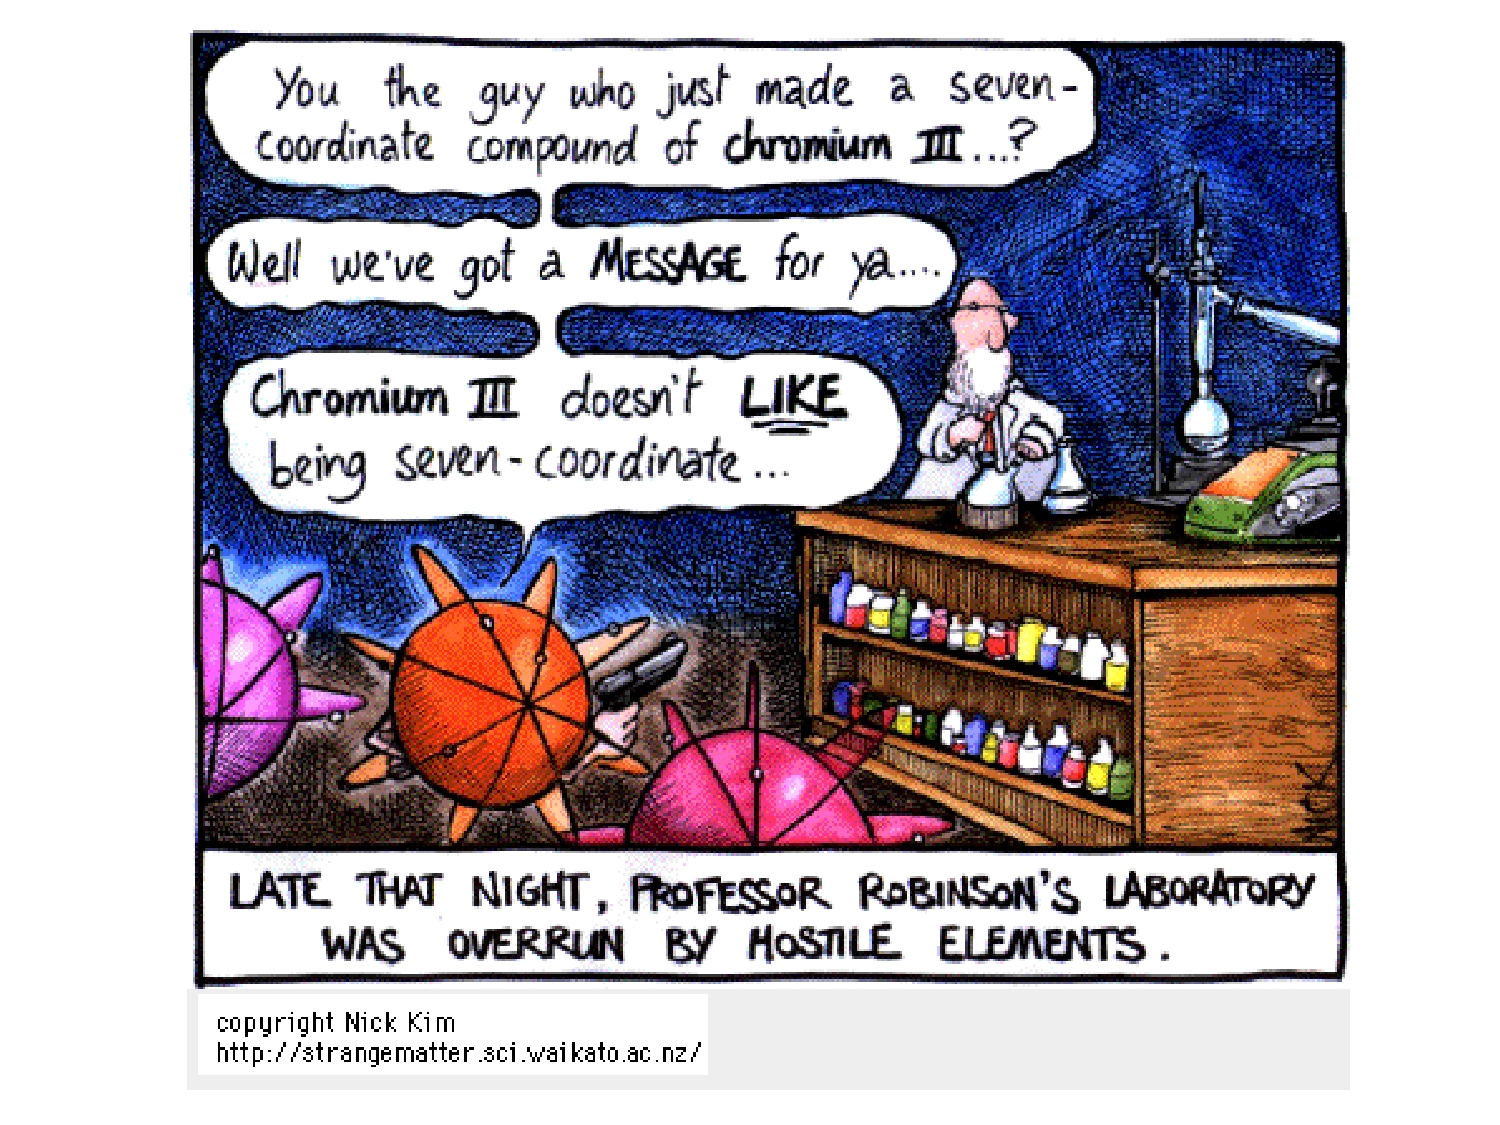 You the guy who just made a seven-
coordinate compound of chromium III...?
Well we've got a MESSAGE for ya....
Chromium III doesn't LIKE
being seven-coordinate...
LATE THAT NIGHT, PROFESSOR ROBINSON'S LABORATORY
WAS OVERRUN BY HOSTILE ELEMENTS.
copyright Nick Kim
http://strangematter.sci.waikato.ac.nz/